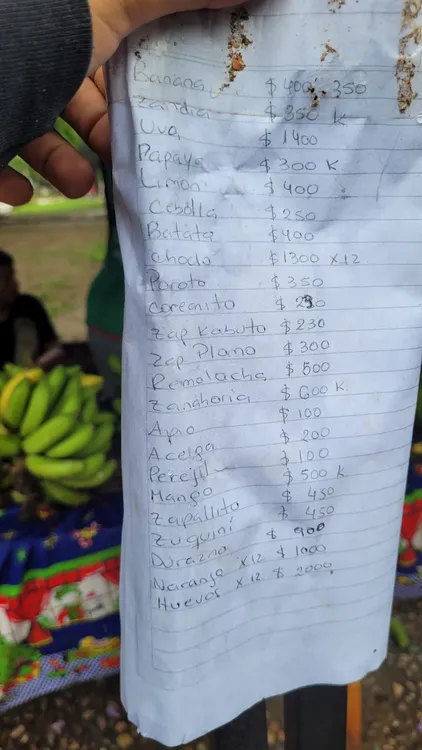 Banana $400 350
Zandia $350 K
Uva $1400
Papaya $300 K
Limon $400
Cebolla $250
Batata $400
choclo $1300 x12
Poroto $350
Coreanito $230
Zap Kabuto $230
Zap Plomo $300
Remolacha $500
Zanahoria $600 K
Apio $100
Acelga $200
Perejil $100
Mango $500 K
Zapallito $450
Zuquini $450
Durazno $900
Naranja x12 $1000
Huevos x12 $2000